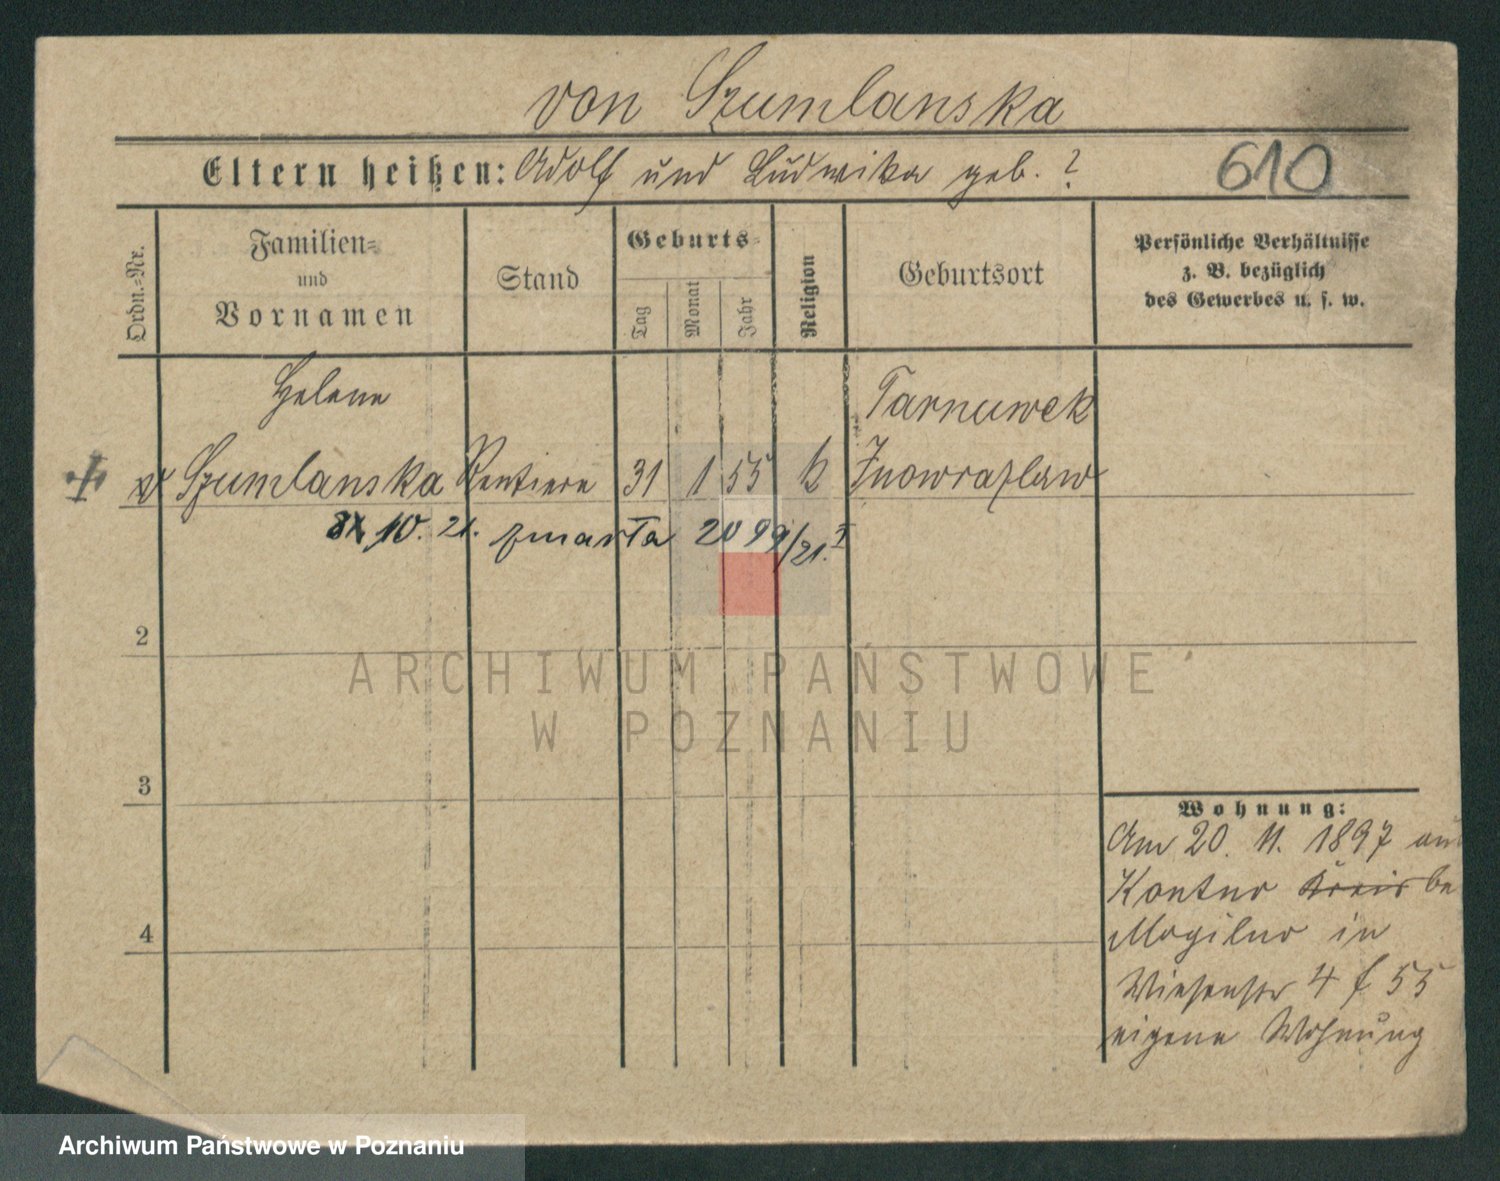 von Szumlanska
Eltern heißen: Adolf und Ludwika geb. ?
610
Ordn.-Nr.
Familien-
und
Vornamen
Stand
Geburts-
Tag
Monat
Jahr
Religion
Geburtsort
Persönliche Verhältnisse
z. B. bezüglich
des Gewerbes u. s. w.
Helene
Tarnuwek
v Szumlanska Rentiere 31 1 55 k Inowrazlaw
10. 21. zmarła 2099/21. I
2
3
4
Wohnung:
Am 20. 11. 1897 au
Kontno Kreis be
Mogilno in
Wiesenstr 4 f 55
eigene Wohnung
ARCHIWUM PAŃSTWOWE
W POZNANIU
Archiwum Państwowe w Poznaniu